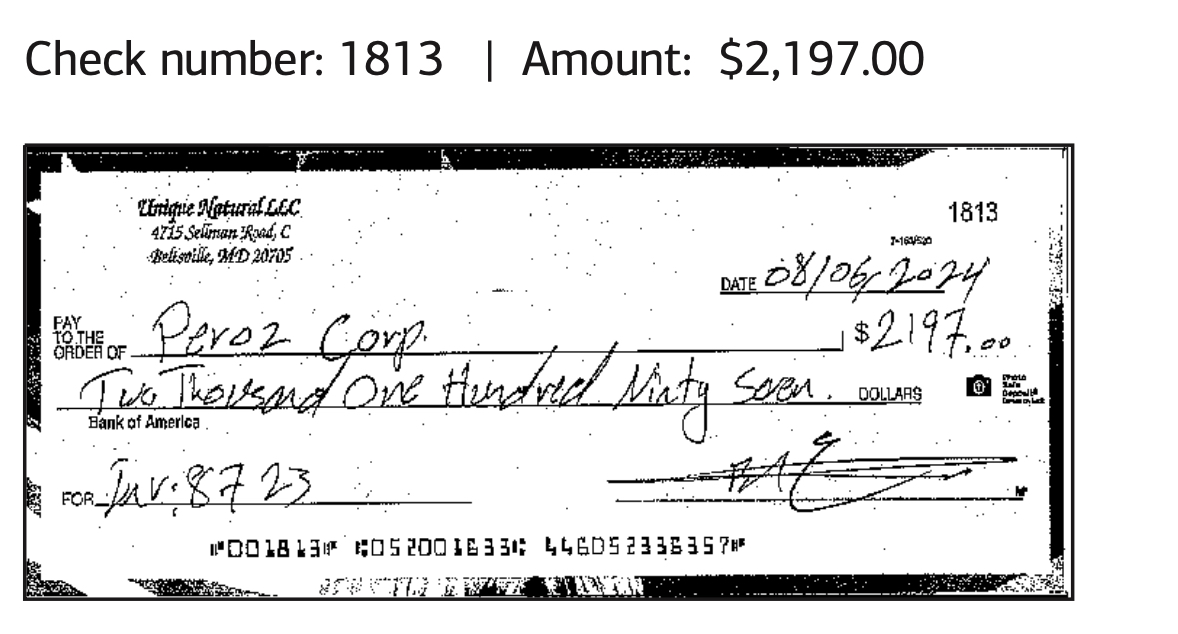 Check number: 1813 | Amount: $2,197.00
Unique Natural LLC
1813
4715 Sellman Road, C
Beltsville, MD 20705
7-163/520
DATE 08/06/2024
PAY
TO THE
ORDER OF Peroz Corp. $2197.00
Two Thousand One Hundred Ninty Seven. DOLLARS
Photo
Safe
Deposit®
Bank of America
FOR Inv: 8723
MP
⑈001813⑈ ⑆052001633⑆ 446052336357⑈